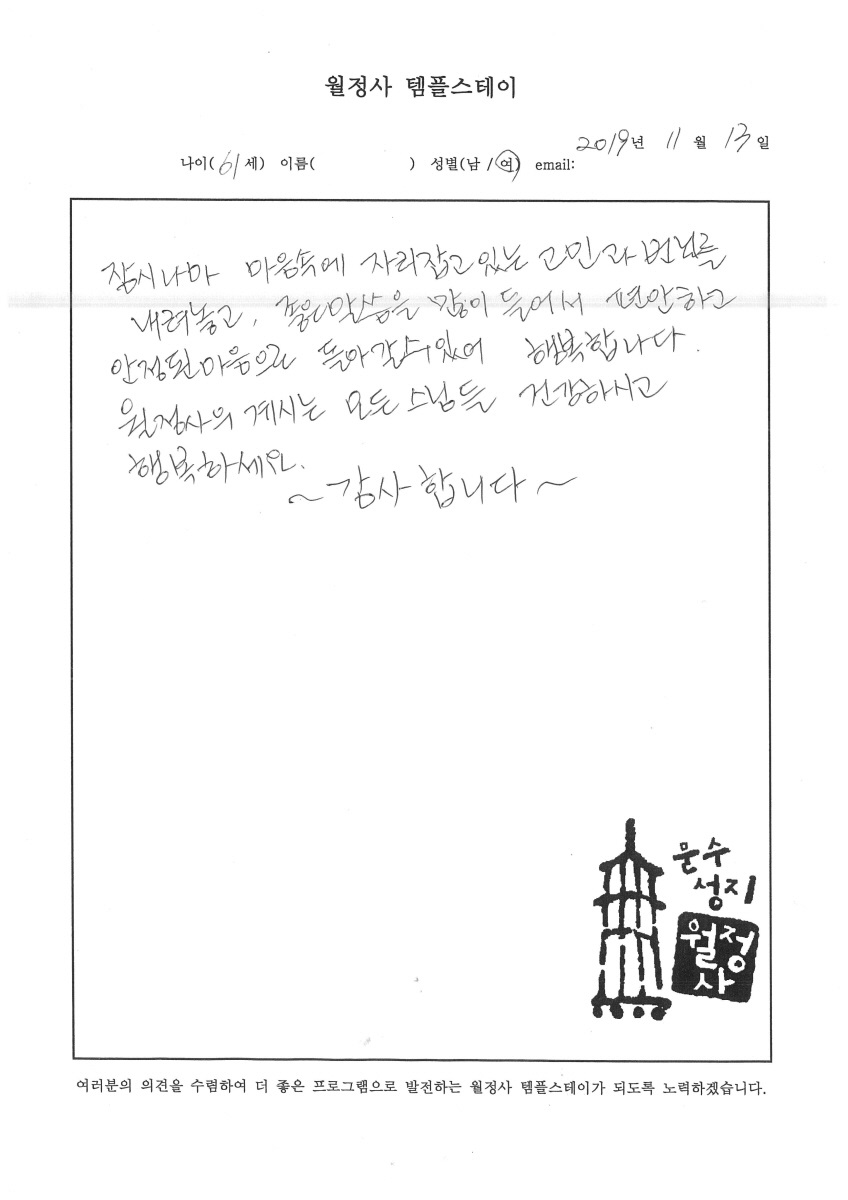 월정사 템플스테이
2019년 11월 13일
나이(61세) 이름( ) 성별(남/여) email:
잠시나마 마음속에 자리잡고 있는 고민과 번뇌를
내려놓고, 좋은 말씀을 많이 들어서 편안하고
안정된 마음으로 돌아갈수있어 행복합니다.
월정사의 계시는 모든 스님들 건강하시고
행복하세요.
~ 감사합니다 ~
문수
성지
월정
사
여러분의 의견을 수렴하여 더 좋은 프로그램으로 발전하는 월정사 템플스테이가 되도록 노력하겠습니다.